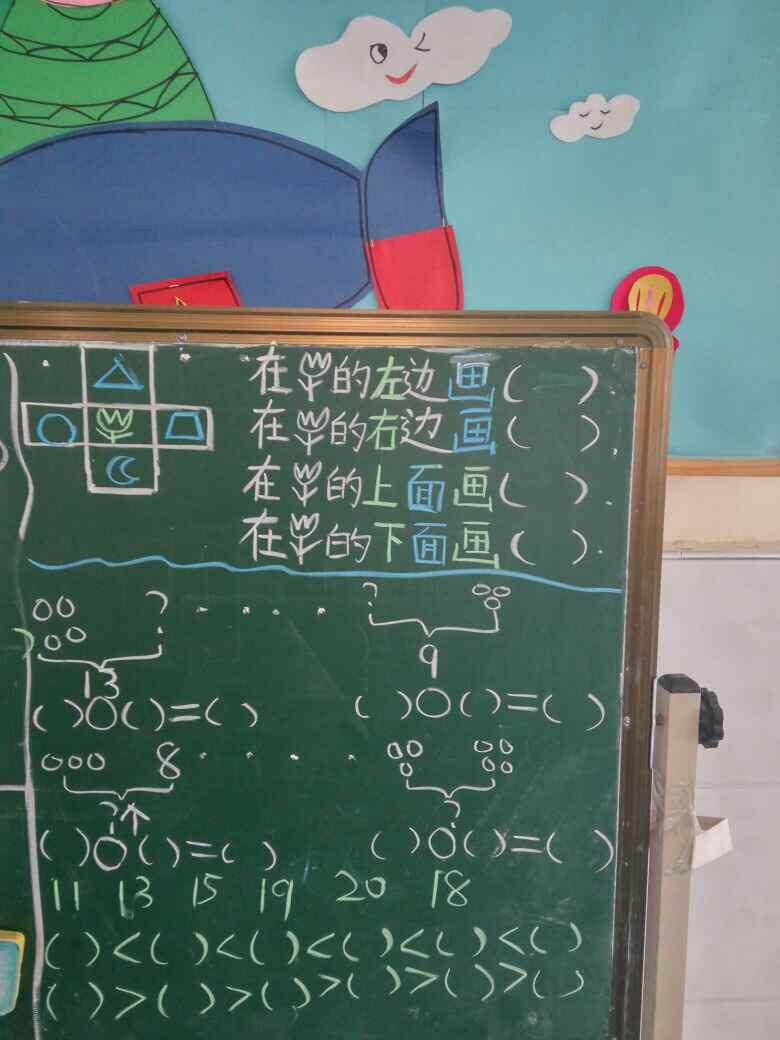 在的左边画( )
在的右边画( ).
在的上面画( ).
在的下面画( ).
? ?
13 9
( )○( )=( ) ( )○( )=( )
8
? ?
( )○( )=( ) ( )○( )=( )
11 13 15 19 20 18
( )<( )<( )<( )<( )<( )
( )>( )>( )>( )>( )>( )